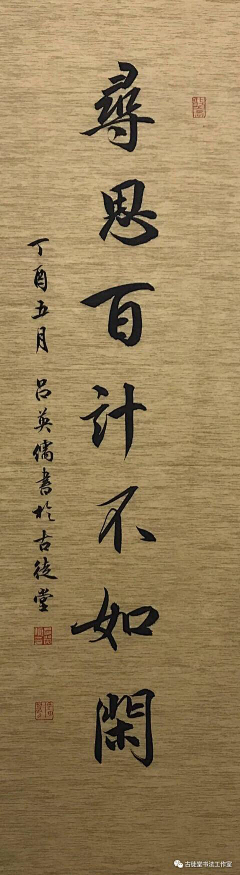 尋思百计不如閑
丁酉五月 吕英儒書於古徒堂
古徒堂书法工作室